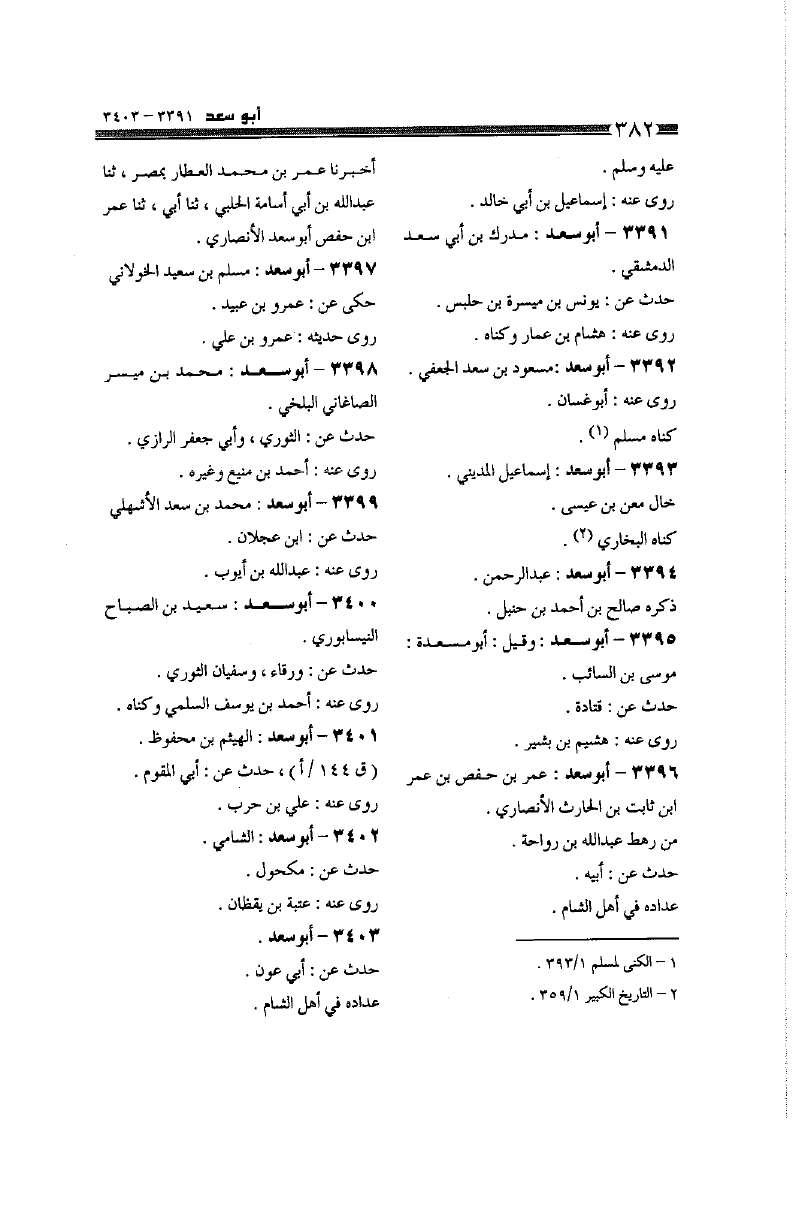 أبو سعد ٣٣٩١ – ٣٤٠٣
٣٨٢
عليه وسلم .
روى عنه : إسماعيل بن أبي خالد .
٣٣٩١ – أبو سعد : مدرك بن أبي سعد
الدمشقي .
حدث عن : يونس بن ميسرة بن حلبس .
روى عنه : هشام بن عمار وكناه .
٣٣٩٢ – أبو سعد : مسعود بن سعد الجعفي .
روى عنه : أبو غسان .
كناه مسلم (١) .
٣٣٩٣ – أبو سعد : إسماعيل المديني .
خال معن بن عيسى .
كناه البخاري (٢) .
٣٣٩٤ – أبو سعد : عبدالرحمن .
ذكره صالح بن أحمد بن حنبل .
٣٣٩٥ – أبو سعد : وقيل : أبو مسعدة :
موسى بن السائب .
حدث عن : قتادة .
روى عنه : هشيم بن بشير .
٣٣٩٦ – أبو سعد : عمر بن حفص بن عمر
ابن ثابت بن الحارث الأنصاري .
من رهط عبدالله بن رواحة .
حدث عن : أبيه .
عداده في أهل الشام .
١ – الكنى لمسلم ٣٩٣/١ .
٢ – التاريخ الكبير ٣٥٩/١ .
أخبرنا عمر بن محمد العطار بمصر ، ثنا
عبدالله بن أبي أسامة الحلبي ، ثنا أبي ، ثنا عمر
ابن حفص أبو سعد الأنصاري .
٣٣٩٧ – أبو سعد : مسلم بن سعيد الخولاني
حكى عن : عمرو بن عبيد .
روى حديثه : عمرو بن علي .
٣٣٩٨ – أبو سعد : محمد بن ميسر
الصاغاني البلخي .
حدث عن : الثوري ، وأبي جعفر الرازي .
روى عنه : أحمد بن منيع وغيره .
٣٣٩٩ – أبو سعد : محمد بن سعد الأشهلي
حدث عن : ابن عجلان .
روى عنه : عبدالله بن أيوب .
٣٤٠٠ – أبو سعد : سعيد بن الصباح
النيسابوري .
حدث عن : ورقاء ، وسفيان الثوري .
روى عنه : أحمد بن يوسف السلمي وكناه .
٣٤٠١ – أبو سعد : الهيثم بن محفوظ .
( ق ١٤٤ / أ ) ، حدث عن : أبي المقوم .
روى عنه : علي بن حرب .
٣٤٠٢ – أبو سعد : الشامي .
حدث عن : مكحول .
روى عنه : عتبة بن يقظان .
٣٤٠٣ – أبو سعد .
حدث عن : أبي عون .
عداده في أهل الشام .